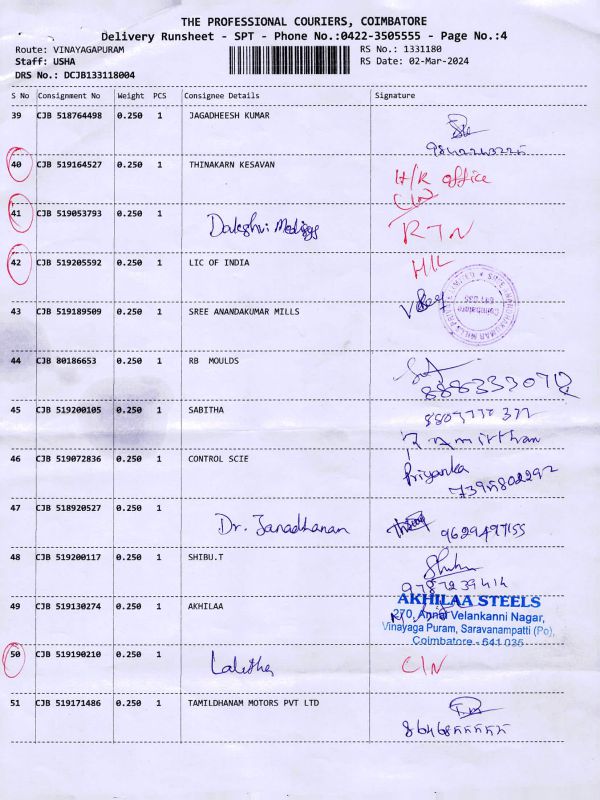 THE PROFESSIONAL COURIERS, COIMBATORE
Delivery Runsheet - SPT - Phone No.:0422-3505555 - Page No.:4
Route: VINAYAGAPURAM RS No.: 1331180
Staff: USHA RS Date: 02-Mar-2024
DRS No.: DCJB133118004
S No Consignment No Weight PCS Consignee Details Signature
39 CJB 518764498 0.250 1 JAGADHEESH KUMAR
40 CJB 519164527 0.250 1 THINAKARN KESAVAN
H/K office
CIN
41 CJB 519053793 0.250 1
RTN
42 CJB 519205592 0.250 1 LIC OF INDIA
H/L
43 CJB 519189509 0.250 1 SREE ANANDAKUMAR MILLS
44 CJB 80186653 0.250 1 RB MOULDS
45 CJB 519200105 0.250 1 SABITHA
46 CJB 519072836 0.250 1 CONTROL SCIE
Priyanka
7395802292
47 CJB 518920527 0.250 1
Dr. Janadhanan
9629497155
48 CJB 519200117 0.250 1 SHIBU.T
9787239414
49 CJB 519130274 0.250 1 AKHILAA
AKHILAA STEELS
270, Annai Velankanni Nagar,
Vinayaga Puram, Saravanampatti (Po),
Coimbatore - 641 035
50 CJB 519190210 0.250 1 Lalitha
CIN
51 CJB 519171486 0.250 1 TAMILDHANAM MOTORS PVT LTD